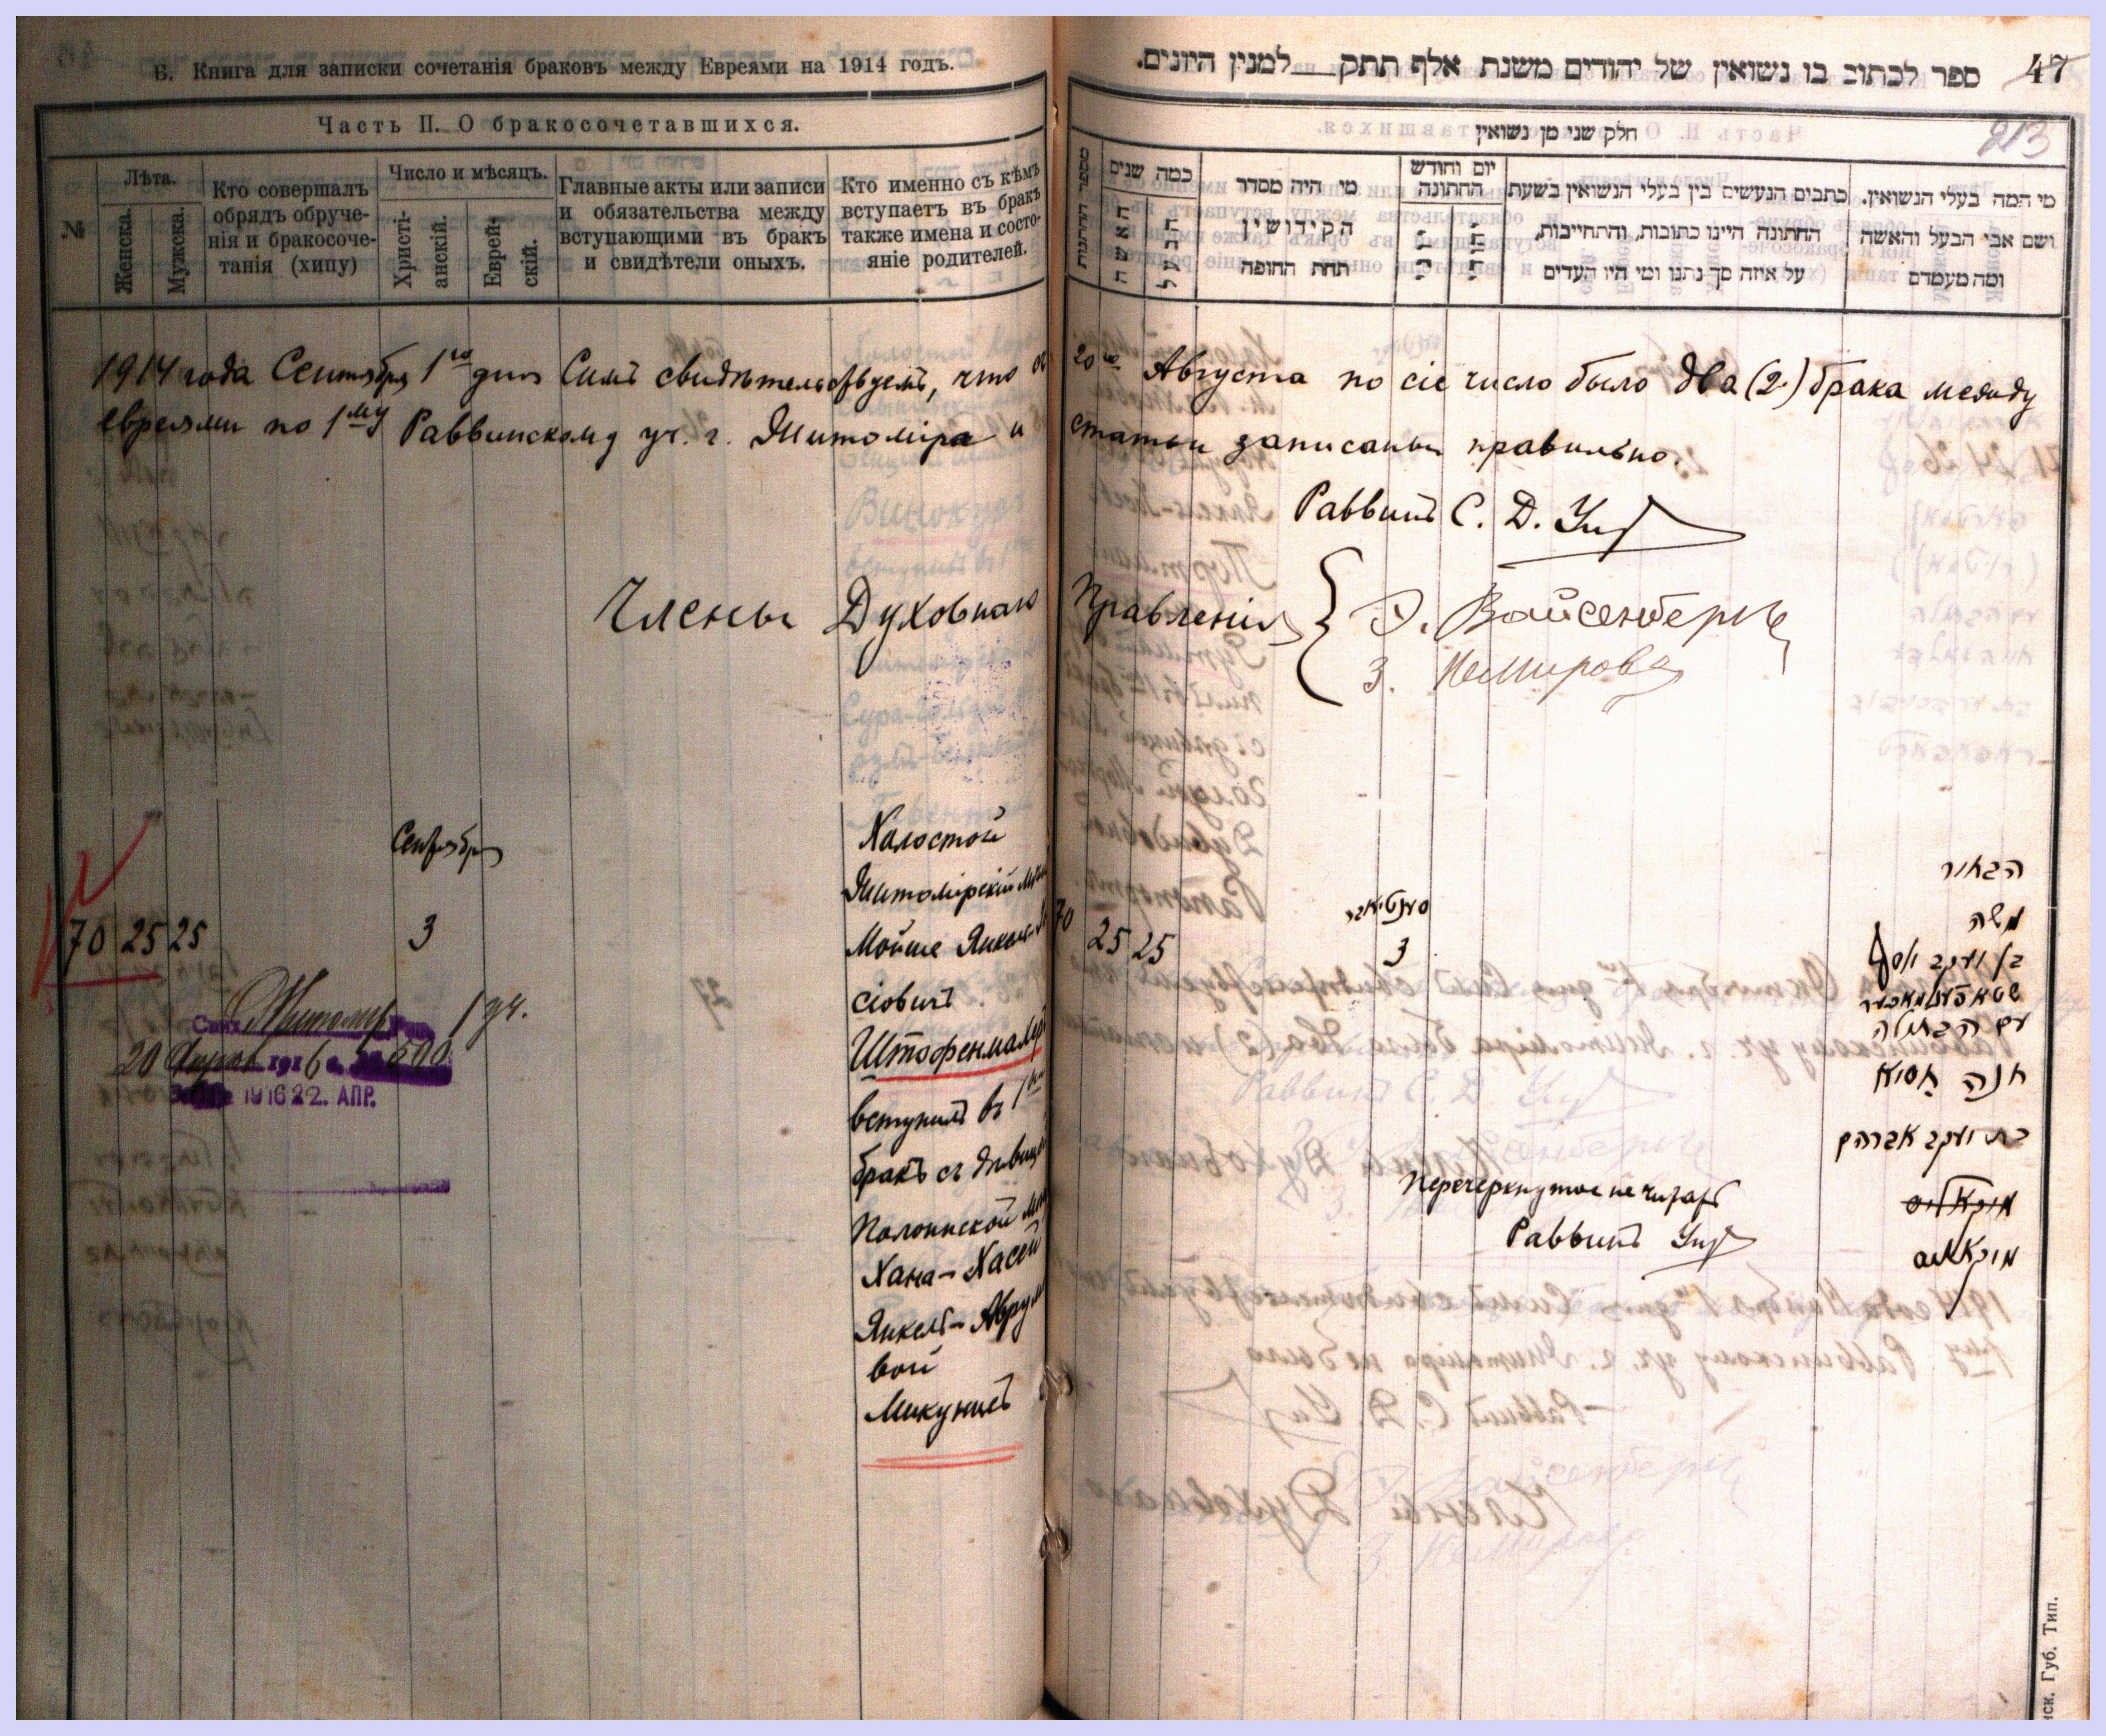 Б. Книга для записки сочетанія браковъ между Евреями на 1914 годъ.
Часть II. О бракосочетавшихся.
№
Лѣта.
Женска.
Мужска.
Кто совершалъ
обрядъ обруче-
нія и бракосоче-
танія (хипу)
Число и мѣсяцъ.
Христі-
анскій.
Еврей-
скій.
Главные акты или записи
и обязательства между
вступающими въ бракъ
и свидѣтели оныхъ.
Кто именно съ кѣмъ
вступаетъ въ бракъ
также имена и состо-
яніе родителей.
47
ספר לכתוב בו נשואין של יהודים משנת אלף תתק למנין היונים.
213
חלק שני מן נשואין
כמה שנים
האשה
הבעל
מי היה מסדר
הקידושין
תחת החופה
יום וחודש
החתונה
כתבים הנעשים בין בעלי הנשואין בשעת
החתונה היינו כתובות, והתחייבות,
על איזה סך נתנו ומי היו העדים
מי המה בעלי הנשואין.
ושם אבי הבעל והאשה
ומה מעמדם
1914 года Сентября 1го дня Симъ свидѣтельствуемъ, что съ 20го Августа по сіе число было два (2) брака между
евреями по 1му Раввинскому уч. г. Житоміра и статьи записаны правильно.
Раввинъ С. Д.
Члены Духовнаго Правленія
Вайсенбергъ
З. Немировъ
Сентября
70 25 25
3
Холостой
Житомірскій
Мойше Янкель-
сіовичъ
Штофенмахеръ
вступилъ въ 1й
бракъ съ дѣвицей
Полоннской
Хана-Хасей
Янкель-Аврум
вой
Микунисъ
Житомир 1 уч.
20 1916
1916 22. АПР.
70
25 25
סענטיאבר
3
הבחור
משה
בן יעקב יוסף
שטאפענמאכער
עם הבתולה
חנה חסיא
בת יעקב אברהם
Перечеркнутое не читать
Раввинъ
нск. Губ. Тип.